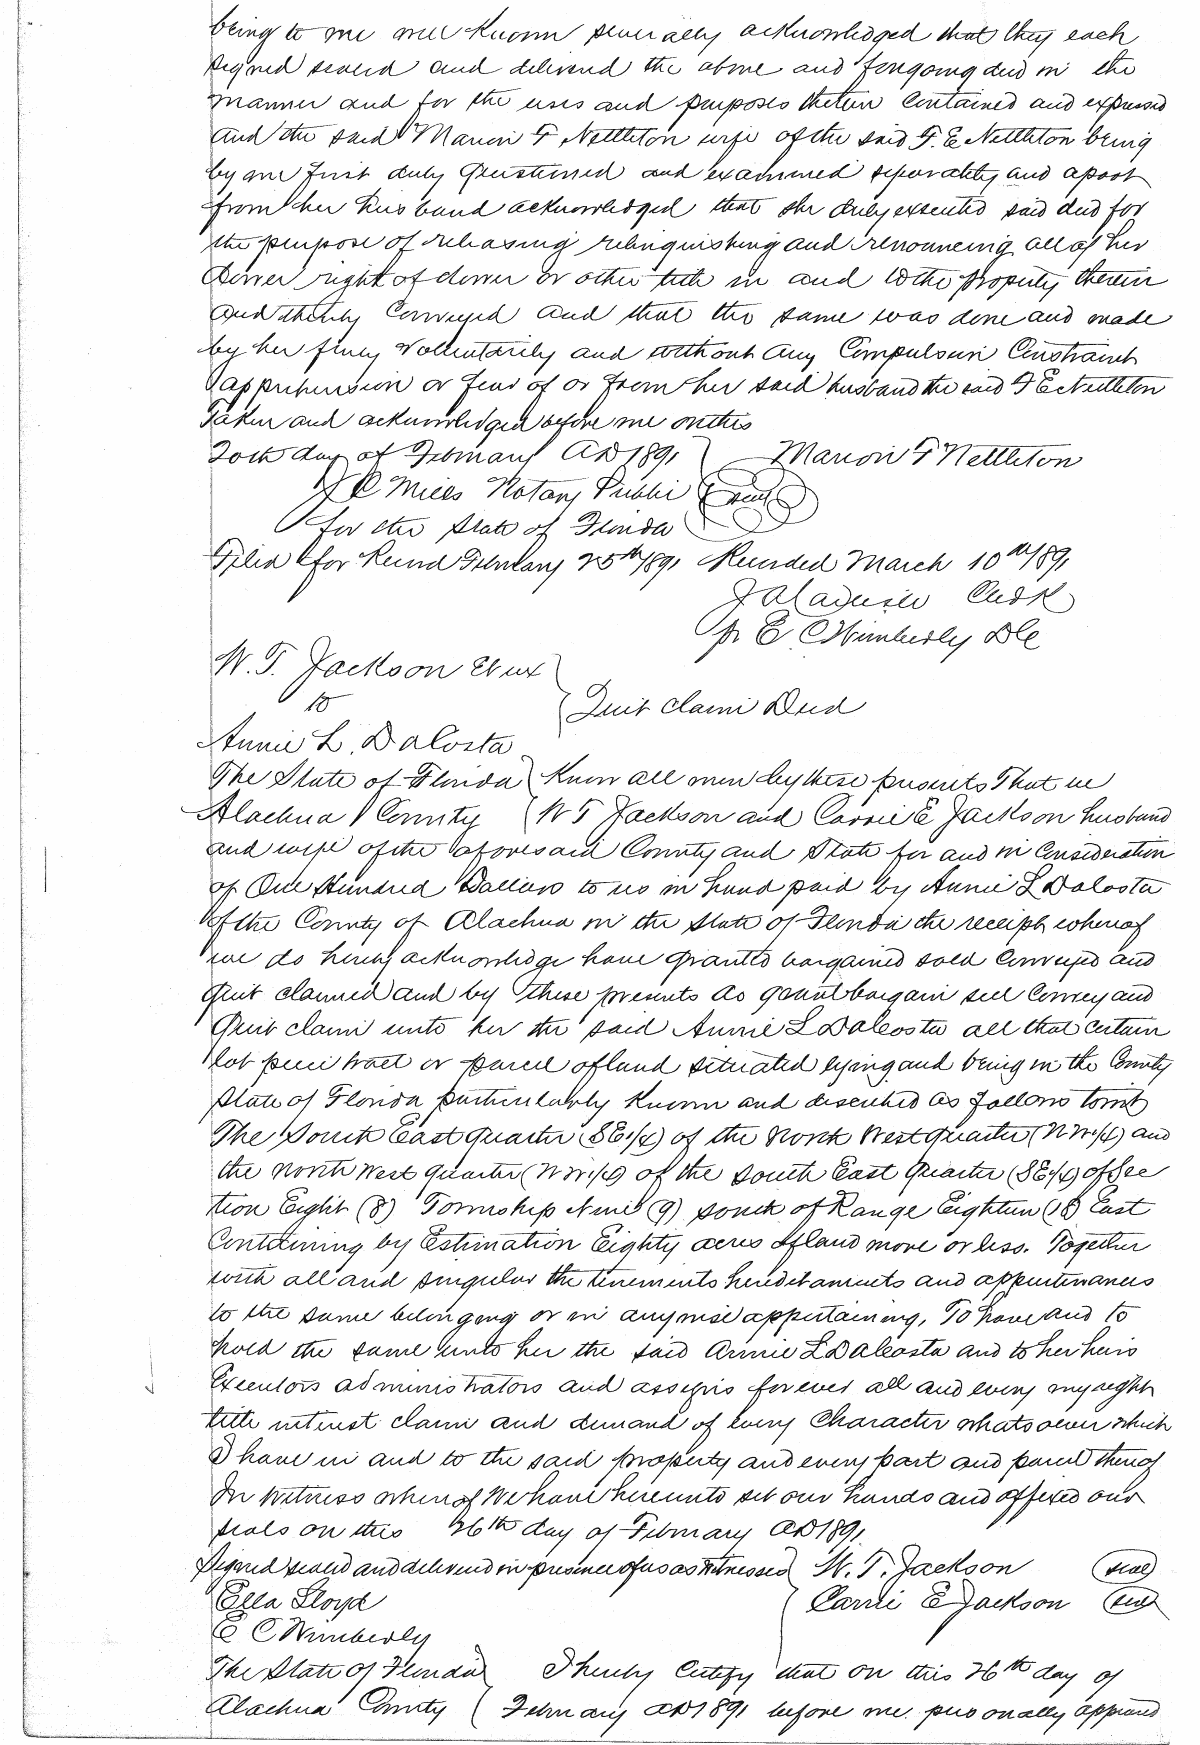 being to me well known severally acknowledged that they each
signed sealed and delivered the above and foregoing deed in the
manner and for the uses and purposes therein contained and expressed
and the said Marion F Nettleton wife of the said F. E Nettleton being
by me first duly questioned and examined separately and apart
from her husband acknowledged that she duly executed said deed for
the purpose of releasing relinquishing and renouncing all of her
Dower right of dower or other title in and to the property therein
and thereby conveyed and that the same was done and made
by her freely voluntarily and without any Compulsion Constraint
apprehension or fear of or from her said husband the said F E Nettleton
Taken and acknowledged before me on this
20th day of February AD 1891 Marion F Nettleton
Mills Notary Public (seal)
for the State of Florida
Filed for Record February 25th 1891 Recorded March 10th 1891
Clerk
pr E C Wimberly DC
W. T. Jackson et ux
to
Quit claim Deed
Annie L. DaCosta
The State of Florida Know all men by these presents That we
Alachua County W T Jackson and Carrie E Jackson husband
and wife of the aforesaid County and State for and in Consideration
of One Hundred Dollars to us in hand paid by Annie L DaCosta
of the County of Alachua in the State of Florida the receipt whereof
we do hereby acknowledge have granted bargained sold conveyed and
quit claimed and by these presents do grant bargain sell Convey and
Quit claim unto her the said Annie L DaCosta all that certain
lot piece tract or parcel of land situated lying and being in the County
State of Florida particularly known and described as follows towit
The South East quarter (SE.1/4) of the North West quarter (N W.1/4) and
the North West quarter (N W.1/4) of the South East Quarter (SE.1/4) of Sec
tion Eight (8) Township Nine (9) south of Range Eighteen (18) East
Containing by Estimation Eighty acres of land more or less. Together
with all and singular the tenements hereditaments and appurtenances
to the same belonging or in anywise appertaining, To have and to
hold the same unto her the said Annie L DaCosta and to her heirs
Executors administrators and assigns forever all and every my right
title interest claim and demand of every Character whatsoever which
I have in and to the said property and every part and parcel thereof
In Witness whereof We have hereunto set our hands and affixed our
seals on this 26th day of February AD 1891
Signed sealed and delivered in presence of us as Witnesses W. T. Jackson (seal)
Ella Lloyd Carrie E Jackson (seal)
E C Wimberly
The State of Florida I hereby Certify that on this 26th day of
Alachua County February AD 1891 before me personally appeared